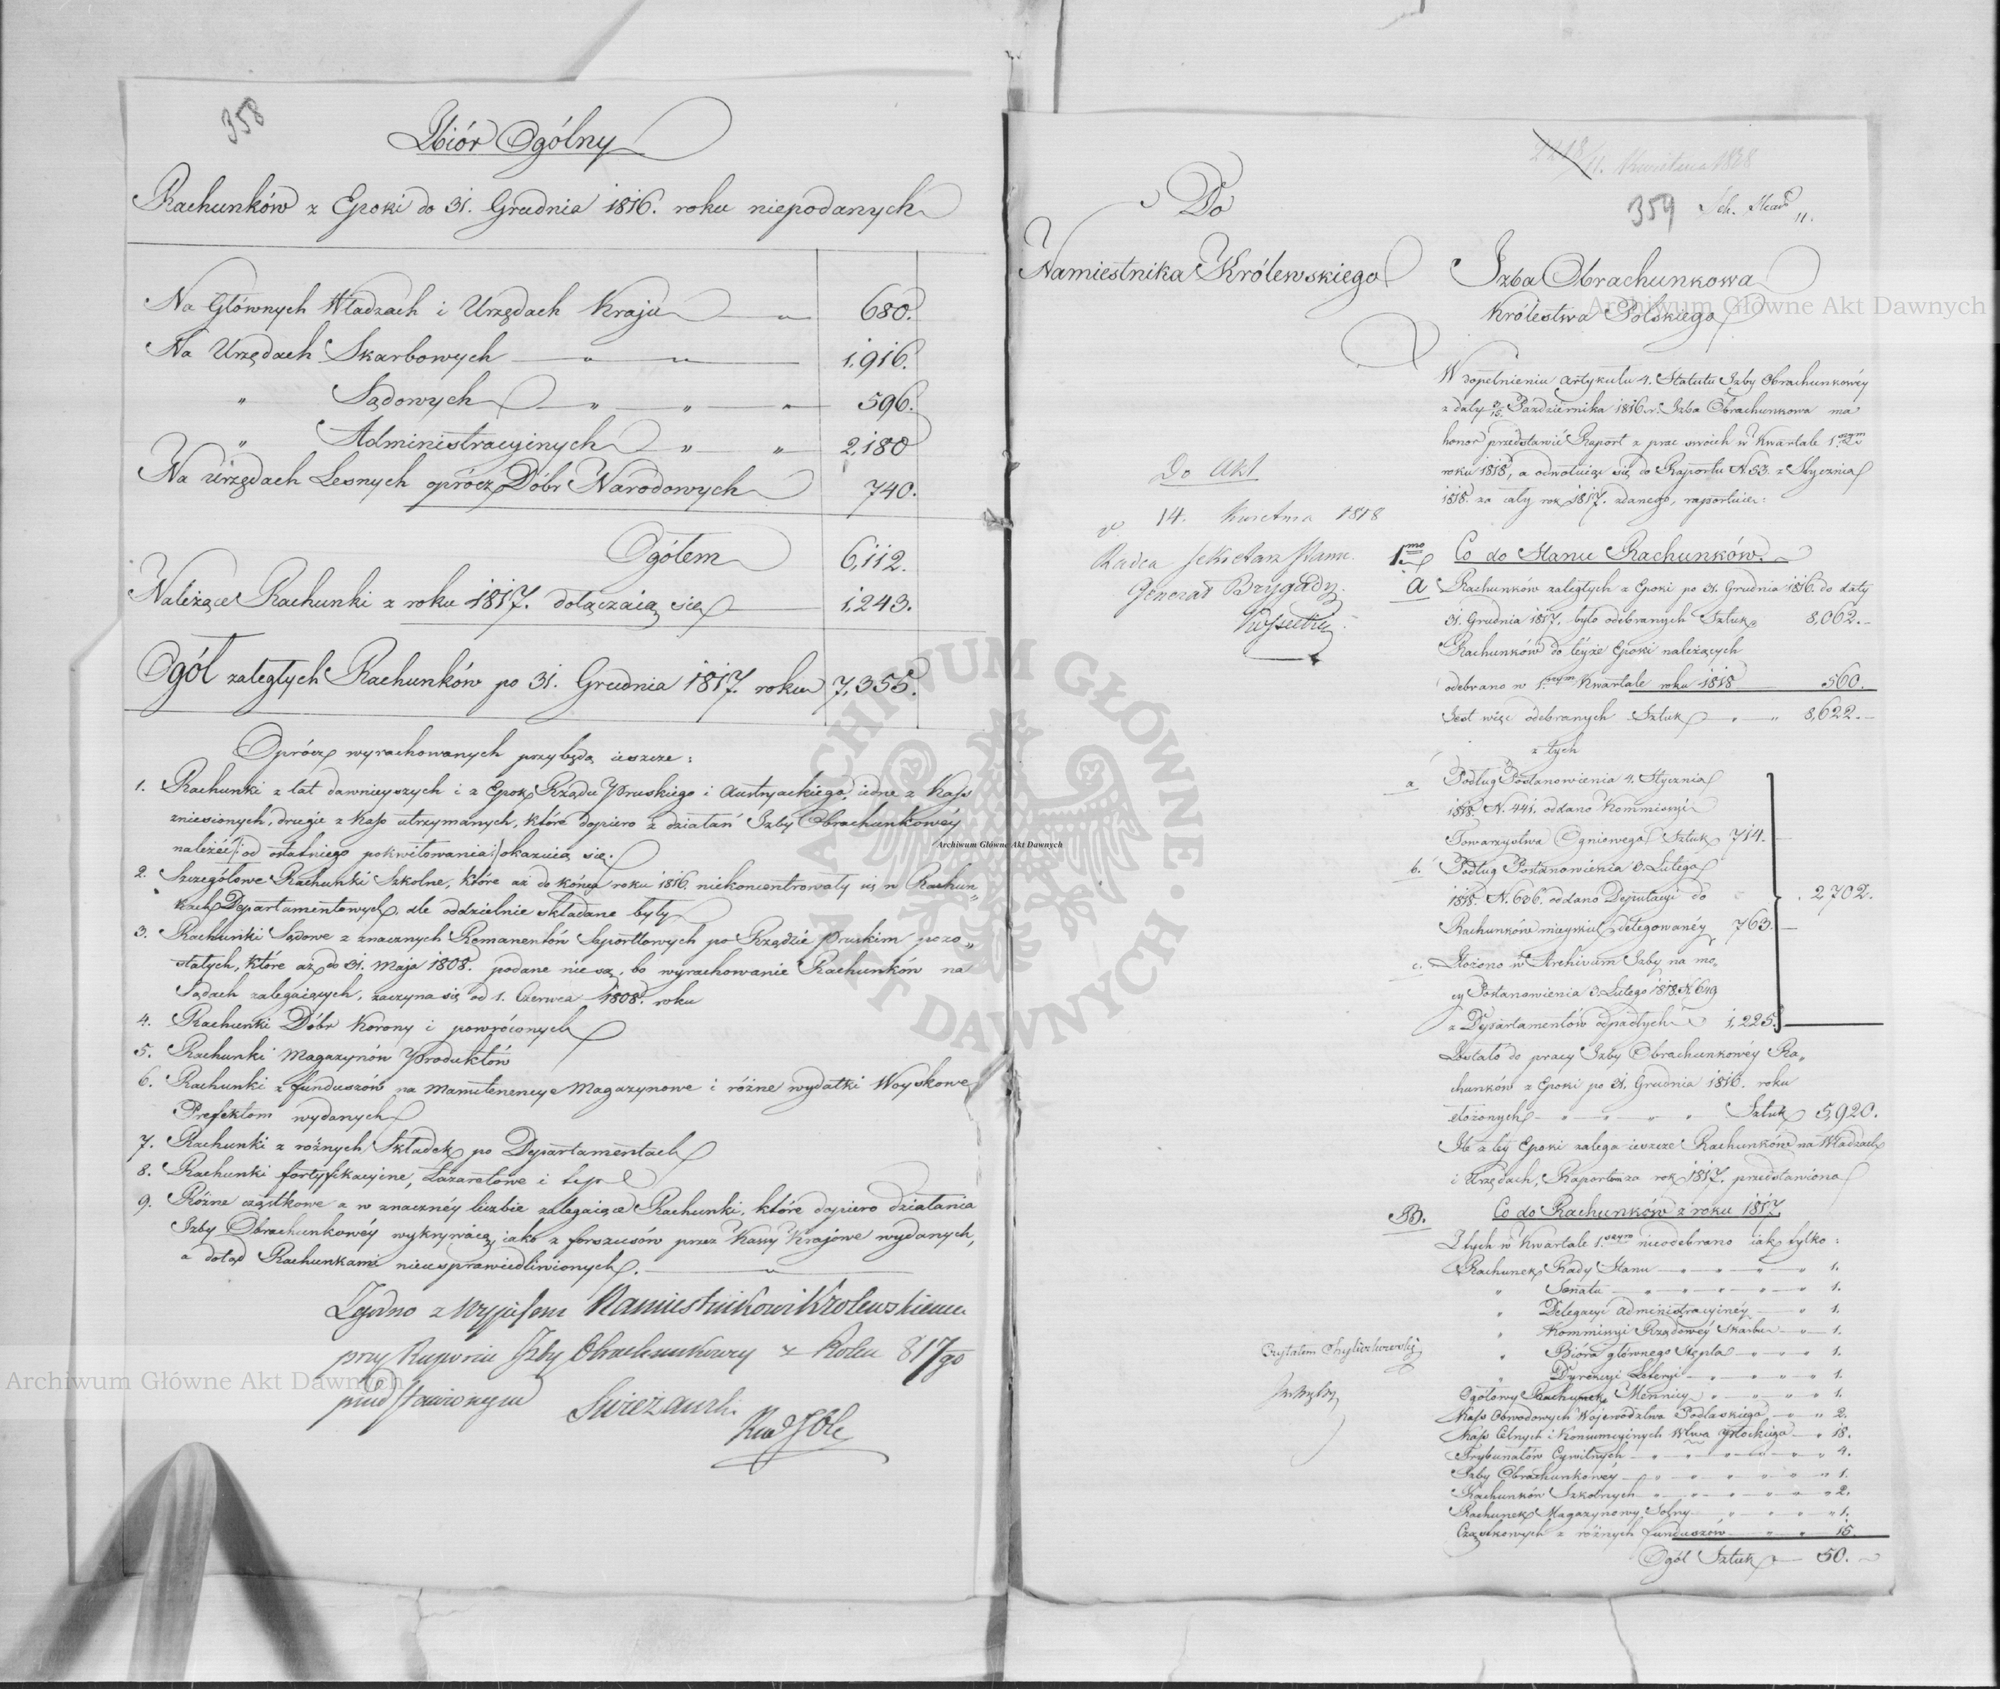 358
Zbiór Ogólny
Rachunków z Epoki do 31. Grudnia 1816. roku niepodanych
Na Głównych Władzach i Urzędach Kraju — „ 680.
Na Urzędach Skarbowych — „ — „ — 1,916.
„ Sądowych — „ „ „ 596.
„ Administracyinych — „ „ 2,180
Na Urzędach Lesnych oprócz Dóbr Narodowych 740.
Ogółem 6,112.
Należące Rachunki z roku 1817. dołączaią się 1,243.
Ogół zaległych Rachunków po 31. Grudnia 1817. roku 7,355.
Oprócz wyrachowanych przybędą ieszcze:
1. Rachunki z lat dawnieyszych i z Epok Rządu Pruskiego i Austryackiego, iedne z Kass
zniesionych, drugie z Kass utrzymanych, które dopiero z działań Izby Obrachunkowéy
należeć /: od ostatniego pokwitowania :/ okazuią się.
2. Szczegółowe Rachunki Szkolne, które aż do końca roku 1816. niekoncentrowały się w Rachun„
kach Departamentowych, ale oddzielnie składane były
3. Rachunki Sądowe z znacznych Remanentów Sportlowych po Rządzie Pruskim pozo„
stałych, które aż do 31. Maja 1808. podane nie są, bo wyrachowanie Rachunków na
Sądach zalegaiących, zaczyna się od 1. Czerwca 1808. roku
4. Rachunki Dóbr Korony i powróconych
5. Rachunki Magazynów Produktów
6. Rachunki z funduszów na Manutenencye Magazynowe i różne wydatki Woyskowe
Prefektom wydanych
7. Rachunki z różnych Składek po Departamentach
8. Rachunki fortyfikacyine, Lazaretowe i t.p.
9. Różne cząstkowe a w znacznéy liczbie zalegaiące Rachunki, które dopiero działania
Izby Obrachunkowéy wykrywaią, iako z forszusów przez Kassy Kraiowe wydanych,
a dotąd Rachunkami nieusprawiedliwionych.
Zgodno z Wypisem Namiestnikowi Krolewskiemu
przy Raporcie Izby Obrachunkowey z Roku 817go
przedstawionym
Swiezawski
359
11. Kwietnia 1818
Do
Namiestnika Królewskiego
Izba Obrachunkowa
Królestwa Polskiego
W dopełnieniu artykułu 4. Statutu Izby Obrachunkowéy
z daty 3/15 Pazdziernika 1816. r. Izba Obrachunkowa ma
honor przedstawić Raport z prac swoich w Kwartale 1.szym
roku 1818, a odwołuiąc się do Raportu N. 53. z Stycznia
1818. za cały rok 1817. zdanego, raportuie:
Do Akt
d. 14. Kwietnia 1818
Radca Sekretarz Stanu
Generał Brygady
Kossecki
1mo Co do Stanu Rachunków.
A Rachunków zaległych z Epoki po 31. Grudnia 1816. do daty
31. Grudnia 1817. było odebranych Sztuk 8,062.
Rachunków do teyże Epoki należących
odebrano w 1.szym Kwartale roku 1818 560.
Jest więc odebranych Sztuk — „ 8,622.
z tych
a Podług Postanowienia 4. Stycznia
1818. N. 441. oddano Kommissyi
Towarzystwa Ogniowego Sztuk 714.
b. Podług Postanowienia 3. Lutego
1818. N. 636. oddano Deputacyi do
Rachunków mieyskich delegowanéy 763.
2,702.
c. Złożono w Archivum Izby na mo„
cy Postanowienia 3. Lutego 1818. N. 649
z Departamentów odpadłych 1,225.
Zostało do pracy Izby Obrachunkowéy Ra„
chunków z Epoki po 31. Grudnia 1816. roku
złożonych — „ „ „ „ Sztuk 5,920.
Ile z téy Epoki zalega ieszcze Rachunków na Władzach
i Urzędach, Raportem za rok 1817. przedstawiono
B. Co do Rachunków z roku 1817.
Z tych w Kwartale 1.szym nieodebrano iak tylko:
Rachunek Rady Stanu — 1.
„ Senatu — 1.
„ Delegacyi administracyinéy — 1.
„ Kommissyi Rządowéy Skarbu — 1.
„ Bióra głównego Stępla — 1.
„ Dyrekcyi Loteryi — 1.
Ogółowy Rachunek Mennicy — 1.
Kass Obwodowych Województwa Podlaskiego — 2.
Kass Celnych i Konsumcyinych Wwa Płockiego — 18.
Trybunałów Cywilnych — 4.
Izby Obrachunkowéy — 1.
Rachunków Szkolnych — 2.
Rachunek Magazynowy Solny — 1.
Cząstkowych z różnych funduszów — 15.
Ogół Sztuk — 50.
Czytałem
Archiwum Główne Akt Dawnych
Archiwum Główne Akt Dawnych
Archiwum Główne Akt Dawnych
ARCHIWUM GŁÓWNE AKT DAWNYCH